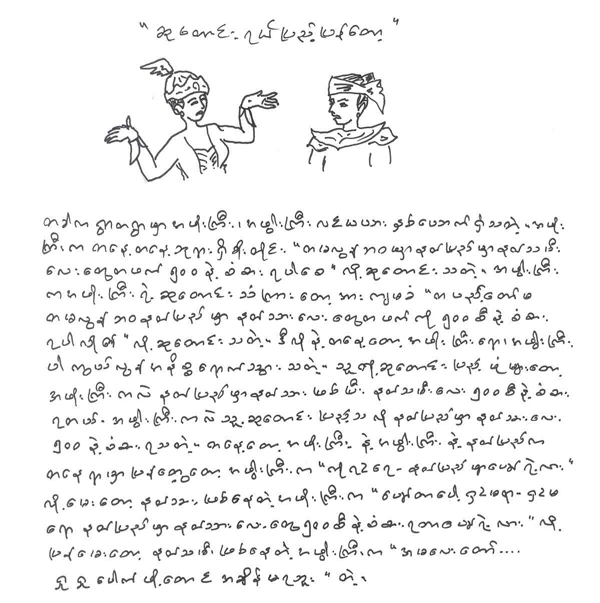 "ဆုတောင်း ရယ် ပြည့်ပြန်တော့"
တခါက ရွာတရွာမှာ အဖိုးကြီး၊ အဖွါးကြီး လင်မယား နှစ်ယောက် ရှိသတဲ့။ အဖိုး
ကြီးက တနေ့တနေ့ ဘုရားရှိခိုးတိုင်း "တမလွန်ဘဝမှာ နတ်ပြည်မှာ နတ်သမီး
လေးတွေတဖက် ၅၀၀ နဲ့ စံစား ရပါစေ" လို့ဆုတောင်း သတဲ့။ အဖွါးကြီး
ကအဖိုးကြီး ရဲ့ ဆုတောင်း သံကြားတော့ အားကျမခံ "တပည့်တော်မ
တမလွန်ဘဝ နတ်ပြည်မှာ နတ်သားလေးတွေတဖက်ကို ၅၀၀စီနဲ့ စံစား
ရပါလို၏" လို့ဆုတောင်းသတဲ့။ ဒီလိုနဲ့ တနေ့တော့ အဖိုးကြီးရော အဖွါးကြီး
ပါ ကွယ်လွန်အနိစ္စရောက်သွားသတဲ့။ သူတို့ဆုတောင်း ပြည့်ပုံများတော့
အဖိုးကြီးကလဲ နတ်ပြည်မှာနတ်သား ဖြစ်ပြီး နတ်သမီးလေး ၅၀၀စီနဲ့ စံစား
ရတယ်။ အဖွါးကြီးကလဲ သူ့ဆုတောင်း ပြည့်သလို နတ်ပြည်မှာ နတ်သားလေး
၅၀၀ နဲ့ စံစားရသတဲ့။ တနေ့တော့ အဖိုးကြီး နဲ့ အဖွါးကြီး နဲ့ နတ်ပြည်က
တနေရာမှာ ပြန်တွေ့တော့ အဖွါးကြီးက "ကိုရင်ရေ- နတ်ပြည်မှာပျော်ရဲ့လား"
လို့မေးတော့ နတ်သား ဖြစ်နေတဲ့ အဖိုးကြီးက "ပျော်တာပေါ့ ရှင်မရာ- ရှင်မ
ရော နတ်ပြည်မှာ နတ်သားလေးတွေ၅၀၀စီနဲ့ စံစားရတာပျော်ရဲ့လား" လို့
ပြန်မေးတော့ နတ်သမီး ဖြစ်နေတဲ့ အဖွါးကြီးက "အမလေး တော်....
ရှူရှူပေါက်ဖို့တောင် အချိန်မရဘူး" တဲ့။